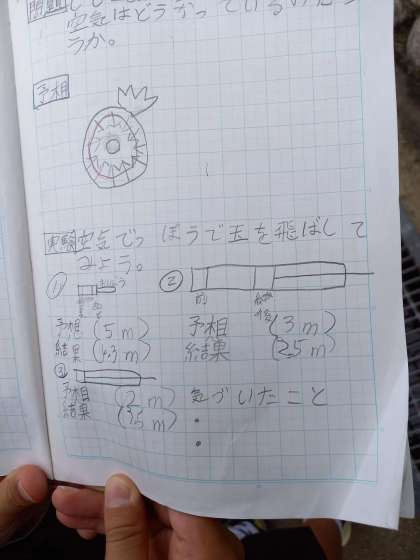 問題
空気はどうなっているのだろ
うか。
予想
実験 空気でっぽうで玉を飛ばして
みよう。
① ②
前 後
予想 (5m) 予想 (3m)
結果 (4.3m) 結果 (2.5m)
③
予想 (2m) 気づいたこと
結果 (3.5m) ・
・